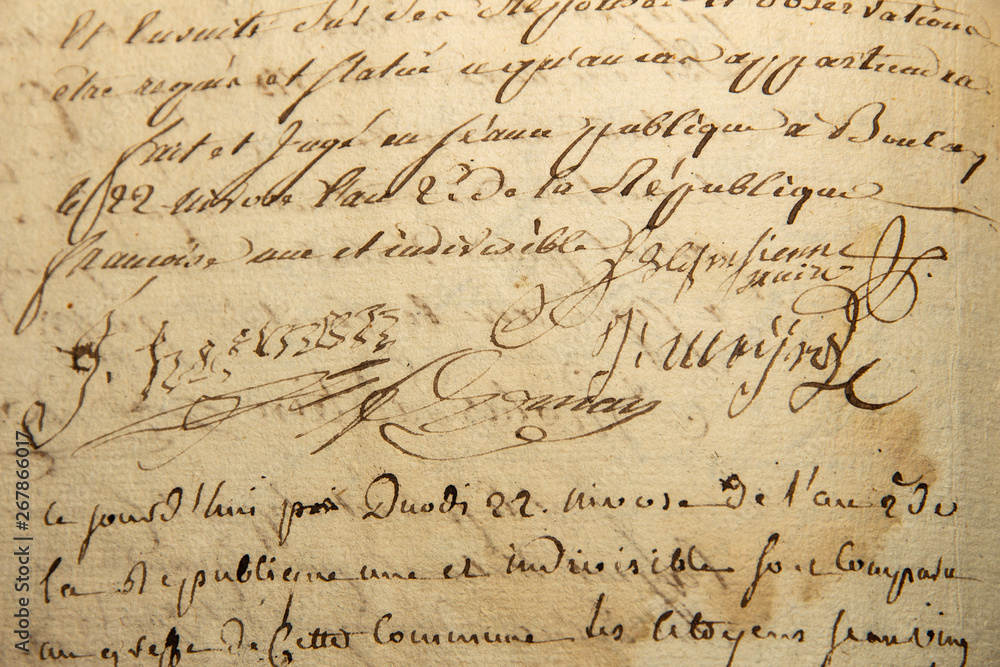 et Ensuite sur les Réponses et observations
être requis et statué ce qu'au cas appartiendra.
fait et Jugé en séance publique a Boulay
le 22 nivose l'an 2.e de la République
françoise une et indivisible
maire
ce jourd'hui Duodi 22. nivose de l'an 2.e de
la Republique une et indivisible sont Comparu
au greffe de Cette Commune les Citoyens
Adobe Stock | #267866017